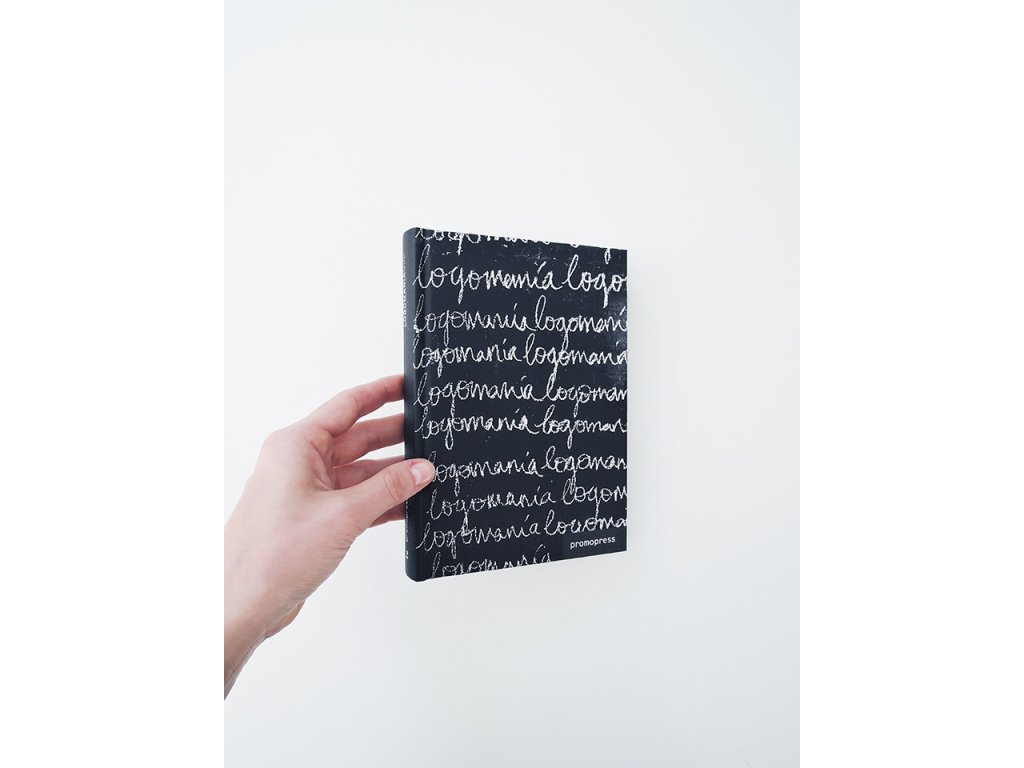 logomanía logo
logomanía logomaní
logomanía logomanía
logomanía logoman
logomanía logoman
logomanía logoman
logomanía logom
logomanía logoma
promopress
logomanía